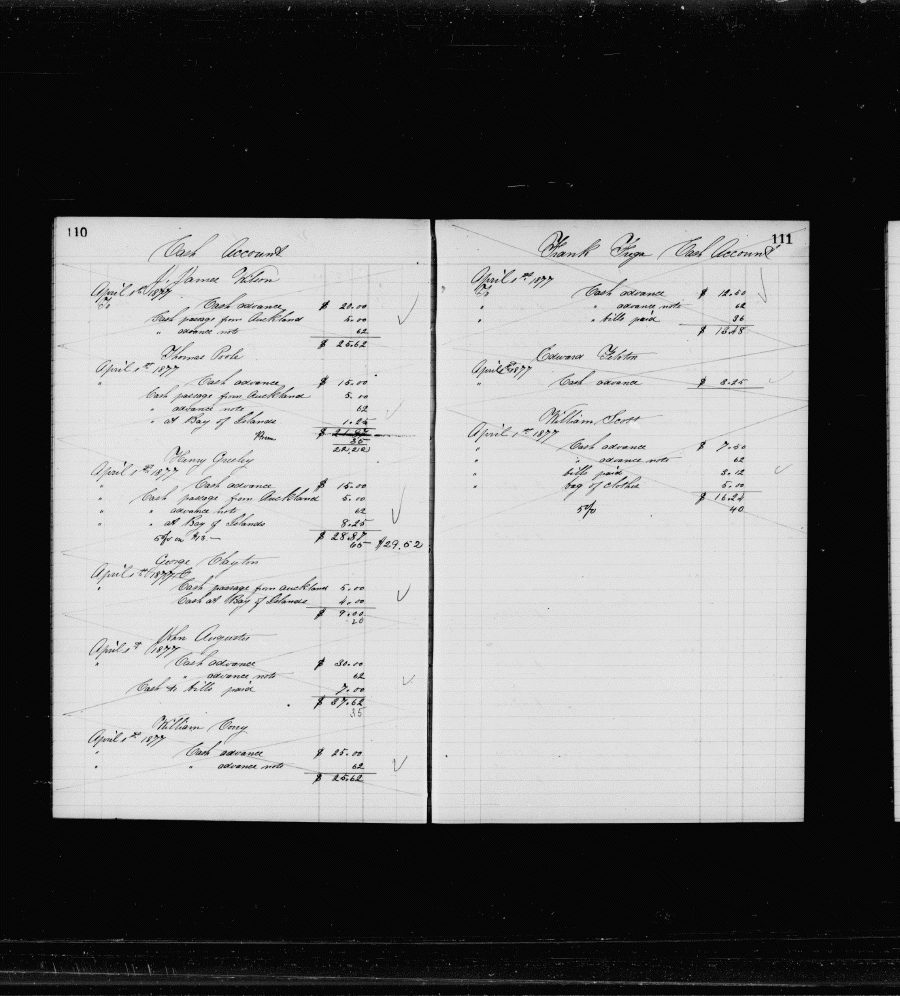 110
Cash Account
James Wilson
April 1st 1877
To Cash advance $ 20.00
Cash passage from Auckland 5.00
" advance note 62
$ 25.62
Thomas Poole
April 1st 1877
" Cash advance $ 15.00
Cash passage from Auckland 5.00
" advance note 62
" at Bay of Islands 1.25
$ 21.87
35
22.22
Henry Greeley
April 1st 1877
" Cash advance $ 15.00
" Cash passage from Auckland 5.00
" " advance note 62
" " at Bay of Islands 8.25
5% on $13.— $ 28.87
65 – $29.52
George Clayton
April 1st 1877
" Cash passage from Auckland 5.00
Cash at Bay of Islands 4.00
$ 9.00
20
John Augustus
April 1st 1877
" Cash advance $ 30.00
" advance note 62
Cash to bills paid 7.00
$ 37.62
35
William Cony
April 1st 1877
" Cash advance $ 25.00
" " advance note 62
$ 25.62
111
Frank Cash Account
April 1st 1877
To Cash advance $ 12.50
" " advance note 62
" " bills paid 36
$ 13.48
Edward
April 1st 1877
" Cash advance $ 8.25
William Scott
April 1st 1877
" Cash advance $ 7.50
" " advance note 62
" bills paid 3.12
" bag of clothes 5.00
$ 16.24
5% 40